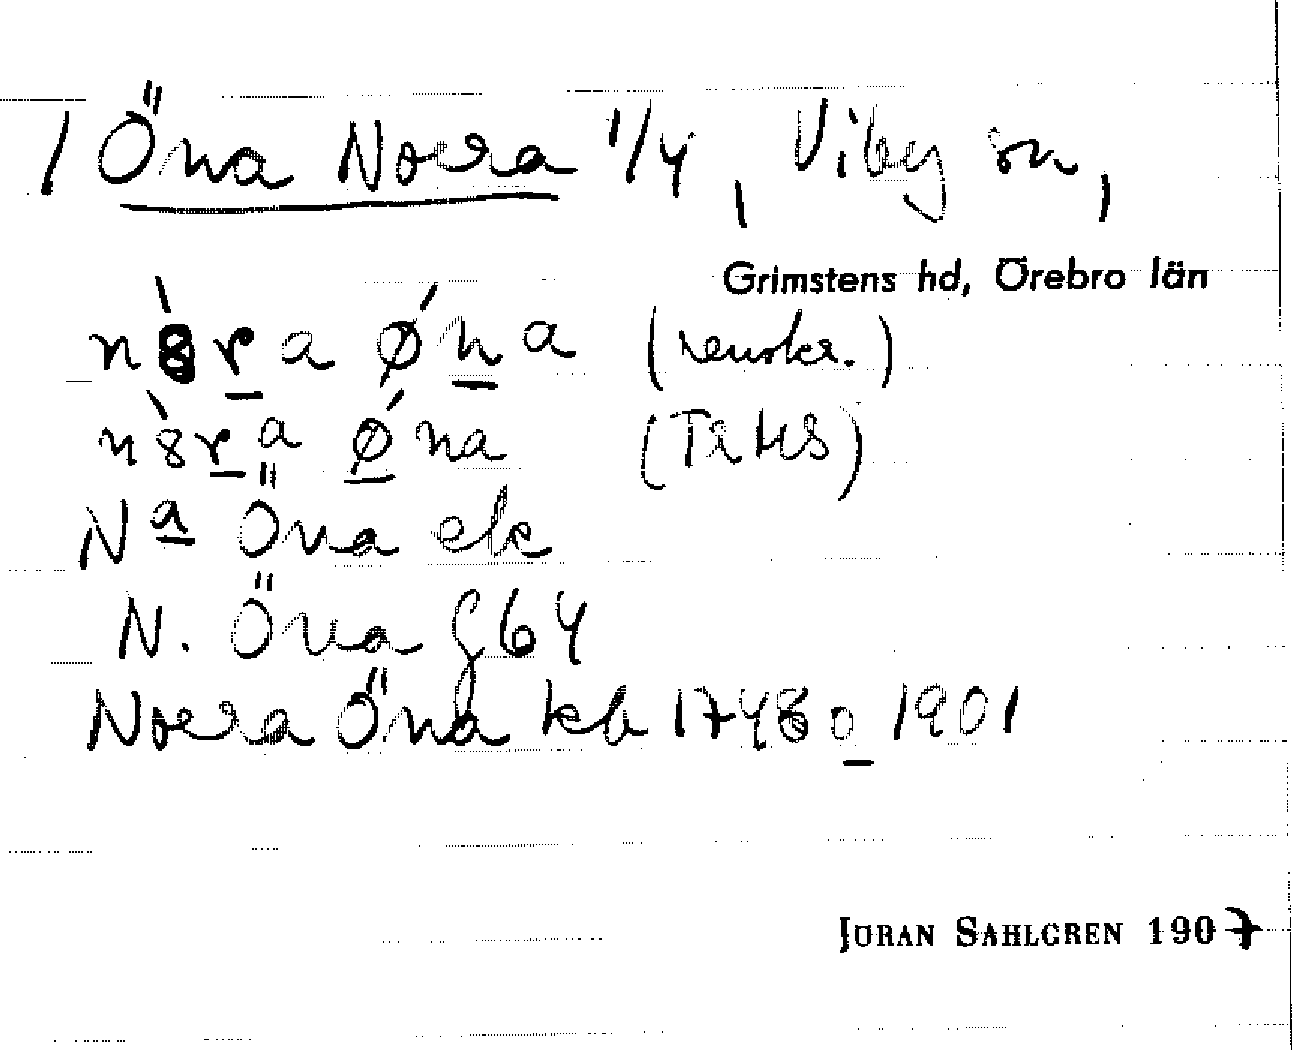 1 Öna Norra 1/4, Viby sn,
Grimstens hd, Örebro län
n8̀ra ǿna (renskr.)
n8̀ra ǿna (TRHS)
Na Öna ek
N. Öna G64
Norra Öna kb 1748 o 1901
JÖRAN SAHLGREN 1907